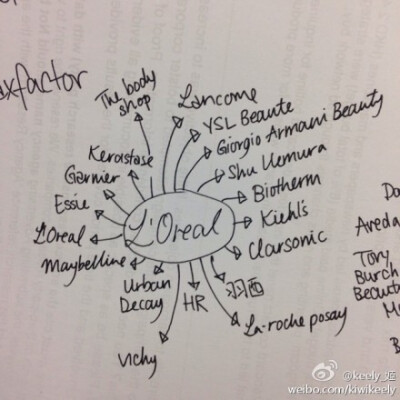 xfactor
The body
shop
Lancome
YSL Beaute
Giorgio Armani Beauty
Shu Uemura
Biotherm
Kiehl's
Clarsonic
羽西
La-roche posay
HR
Urban
Decay
Vichy
Maybelline
L'Oreal
Essie
Garnier
Kerastase
L'Oreal
Aveda
Tory
Burch
@keely_
weibo.com/kiwikeely